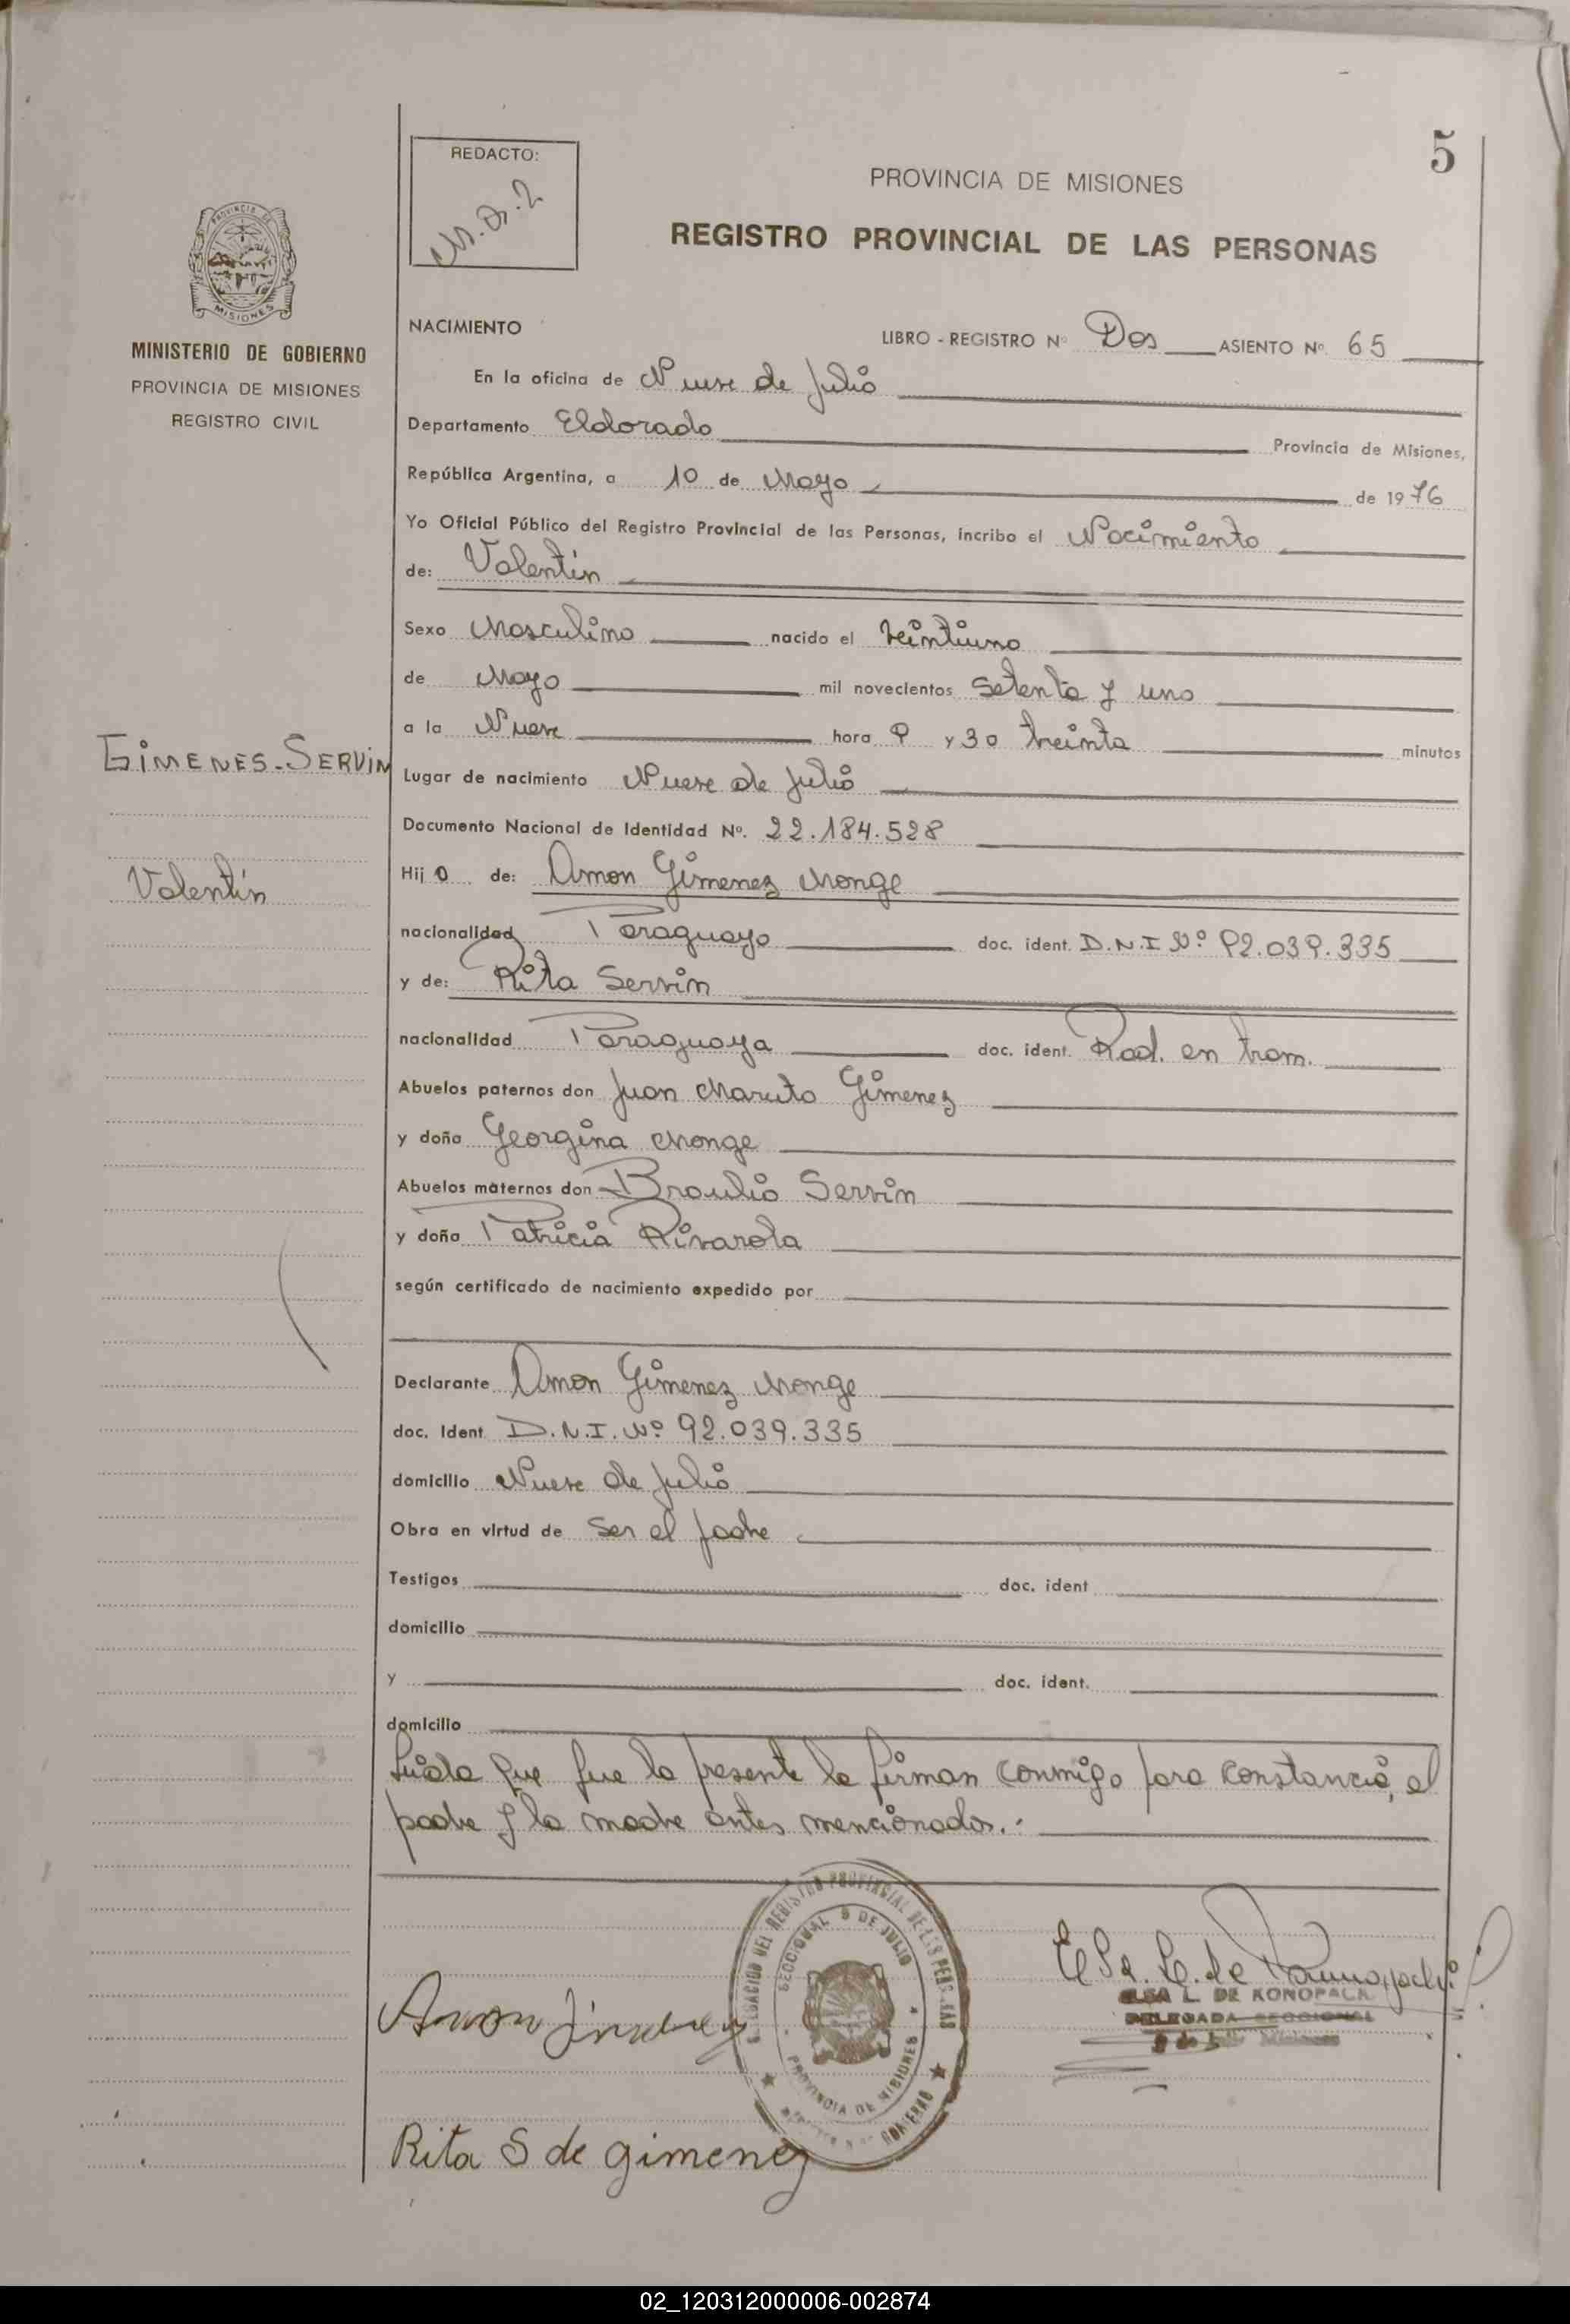 5
REDACTO:
PROVINCIA DE MISIONES
REGISTRO PROVINCIAL DE LAS PERSONAS
MISIONES
MINISTERIO DE GOBIERNO
PROVINCIA DE MISIONES
REGISTRO CIVIL
NACIMIENTO
LIBRO - REGISTRO Nº Dos ASIENTO Nº 65
En la oficina de Nueve de Julio
Departamento Eldorado Provincia de Misiones,
República Argentina, a 10 de Mayo de 1976
Yo Oficial Público del Registro Provincial de las Personas, incribo el Nacimiento
de: Valentin
Sexo Masculino nacido el Veintiuno
de Mayo mil novecientos Setenta y uno
a la Nueve hora 9 y 30 treinta minutos
GIMENES-SERVIN
Lugar de nacimiento Nueve de Julio
Documento Nacional de Identidad Nº. 22.184.528
Valentin
Hij o de: Amon Gimenez Monge
nacionalidad Paraguayo doc. ident. D.N.I Nº 92.039.335
y de: Rita Servin
nacionalidad Paraguaya doc. ident. Rad. en tram.
Abuelos paternos don Juan Gimenez
y doña Georgina Monge
Abuelos maternos don Braulio Servin
y doña Patricia Rivarola
según certificado de nacimiento expedido por
Declarante Amon Gimenez Monge
doc. Ident D.N.I. Nº 92.039.335
domicilio Nueve de Julio
Obra en virtud de Ser el padre
Testigos doc. ident
domicilio
y doc. ident.
domicilio
Leida que fue la presente la firman conmigo para constancia, el
padre y la madre antes mencionados.-
DELEGACION DEL REGISTRO PROVINCIAL DE LAS PERSONAS
SECCIONAL 9 DE JULIO
PROVINCIA DE MISIONES
GOBIERNO
Elsa L. de
ELSA L. DE KONOPACK
DELEGADA SECCIONAL
9 de Julio Misiones
Amon Jimenez
Rita S de gimenez
02_120312000006-002874